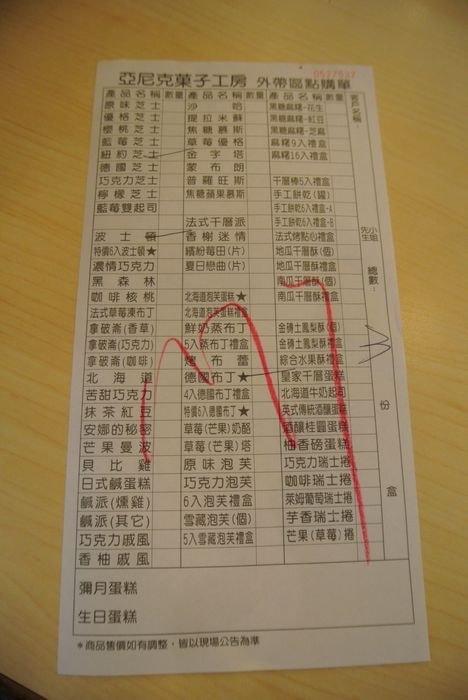 0527537
亞尼克菓子工房 外帶區點購單
產品名稱 數量 產品名稱 數量 產品名稱 數量 客戶名稱
原味芝士 沙哈 黑糖麻糬-花生
優格芝士 提拉米蘇 黑糖麻糬-紅豆
櫻桃芝士 焦糖慕斯 黑糖麻糬-芝麻
藍莓芝士 草莓優格 麻糬9入禮盒
紐約芝士 金字塔 麻糬16入禮盒
德國芝士 蒙布朗
巧克力芝士 普羅旺斯 千層棒5入禮盒
檸檬芝士 焦糖蘋果慕斯 手工餅乾(罐)
藍莓雙起司 手工餅乾6入禮盒-A
法式千層派 手工餅乾6入禮盒-B
波士頓 香榭迷情 法式烤點心禮盒 先生 小姐
特價6入波士頓★ 繽紛莓田(片) 地瓜千層酥(個)
濃情巧克力 夏日戀曲(片) 地瓜千層酥禮盒 總數:
黑森林 南瓜千層酥(個)
咖啡核桃 北海道泡芙蛋糕★ 南瓜千層酥禮盒
法式草莓凍布丁 北海道泡芙禮盒
拿破崙(香草) 鮮奶蒸布丁 金磚土鳳梨酥(個)
拿破崙(巧克力) 5入蒸布丁禮盒 金磚土鳳梨酥禮盒
拿破崙(咖啡) 烤布蕾 綜合水果酥禮盒
北海道 德國布丁★ 皇家千層蛋糕
苦甜巧克力 4入德國布丁禮盒 北海道牛奶起司
抹茶紅豆 特價6入德國布丁★ 英式傳統酒釀蛋糕 份
安娜的秘密 草莓(芒果)奶酪 酒釀桂圓蛋糕
芒果曼波 草莓(芒果)塔 柚香磅蛋糕
貝比雞 原味泡芙 巧克力瑞士捲
日式鹹蛋糕 巧克力泡芙 咖啡瑞士捲 盒
鹹派(燻雞) 6入泡芙禮盒 萊姆葡萄瑞士捲
鹹派(其它) 雪藏泡芙(個) 芋香瑞士捲
巧克力戚風 5入雪藏泡芙禮盒 芒果(草莓)捲
香柚戚風
彌月蛋糕
生日蛋糕
*商品售價如有調整，皆以現場公告為準